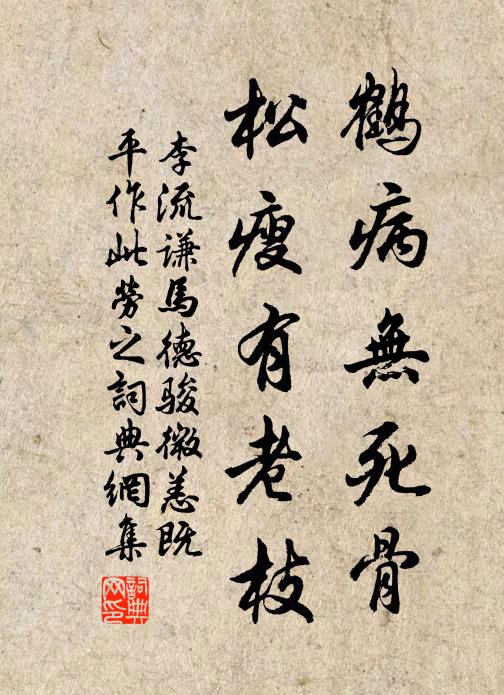 鶴病無死骨
松瘦有老枝
李流謙馬德駿微恙既
平作此勞之詞典網集
詞典網印